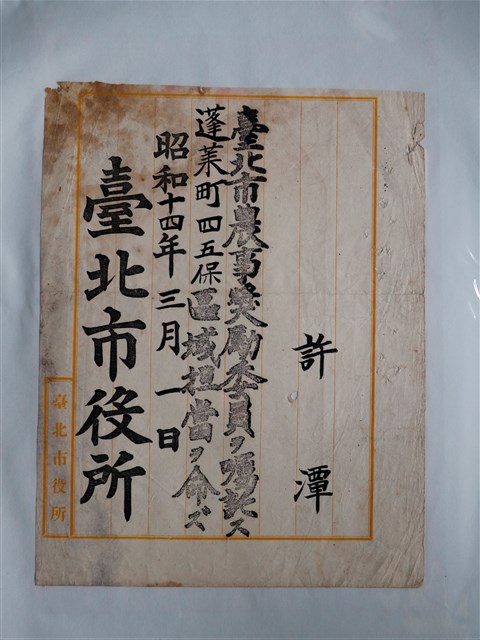 許 潭
臺北市農事奬勵委員ヲ囑託ス
蓬萊町四五保區域担當ヲ命ズ
昭和十四年三月一日
臺北市役所
臺北市役所